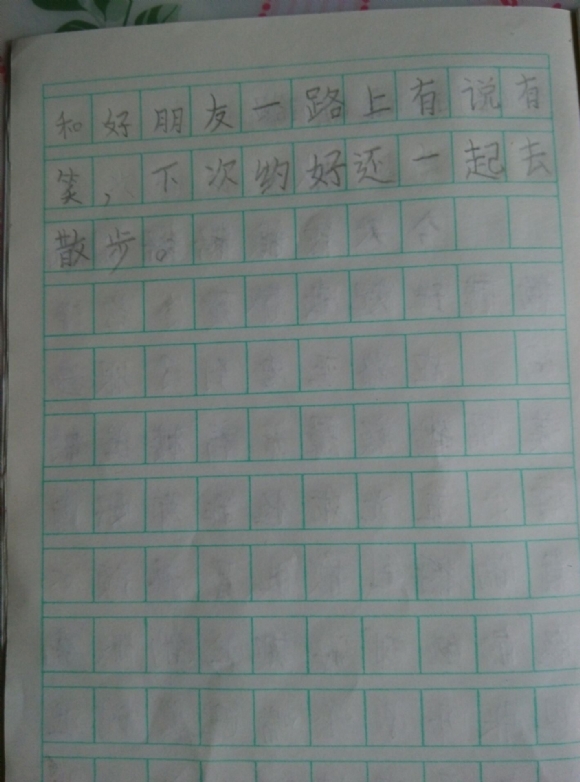 和好朋友一路上有说有
笑,下次约好还一起去
散步。